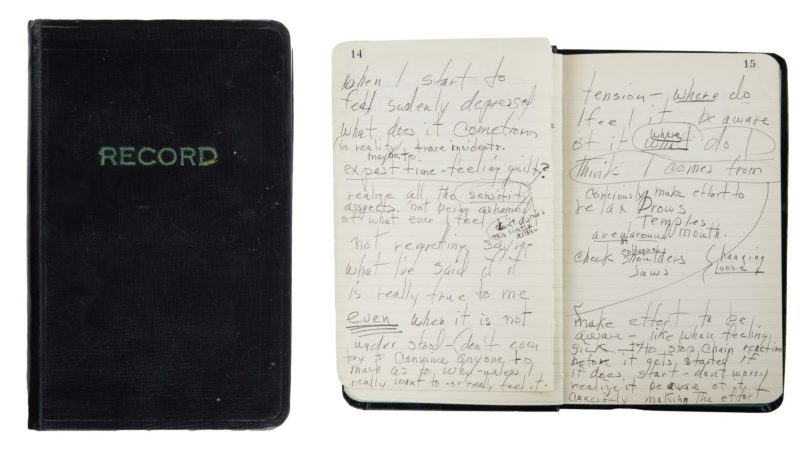 RECORD
14
When I start to
feel sudenly depressed
what does it come from
in reality, trace incidents.
maybe to
expast time - feeling guilty?
realize all the sensitity
asspects. not being ashamed
of what ever I feel
not regreting saying
what I've said if it
is really true to me
even when it is not
under stood - don't even
try to convince anyone to
much as to, why - unless I
really want to - or realy feel it.
15
tension - where do
I feel it be aware
of it where what do I
think I comes from
conciously make effort to
relax brows
temples
area around mouth.
collapse
check shoulders hanging
jaws loose
make effort to be
aware - like when feeling
sick - to stop chain reaction
before it gets started if
it does start - dont worry
realize it be aware of it
conciously making the effort